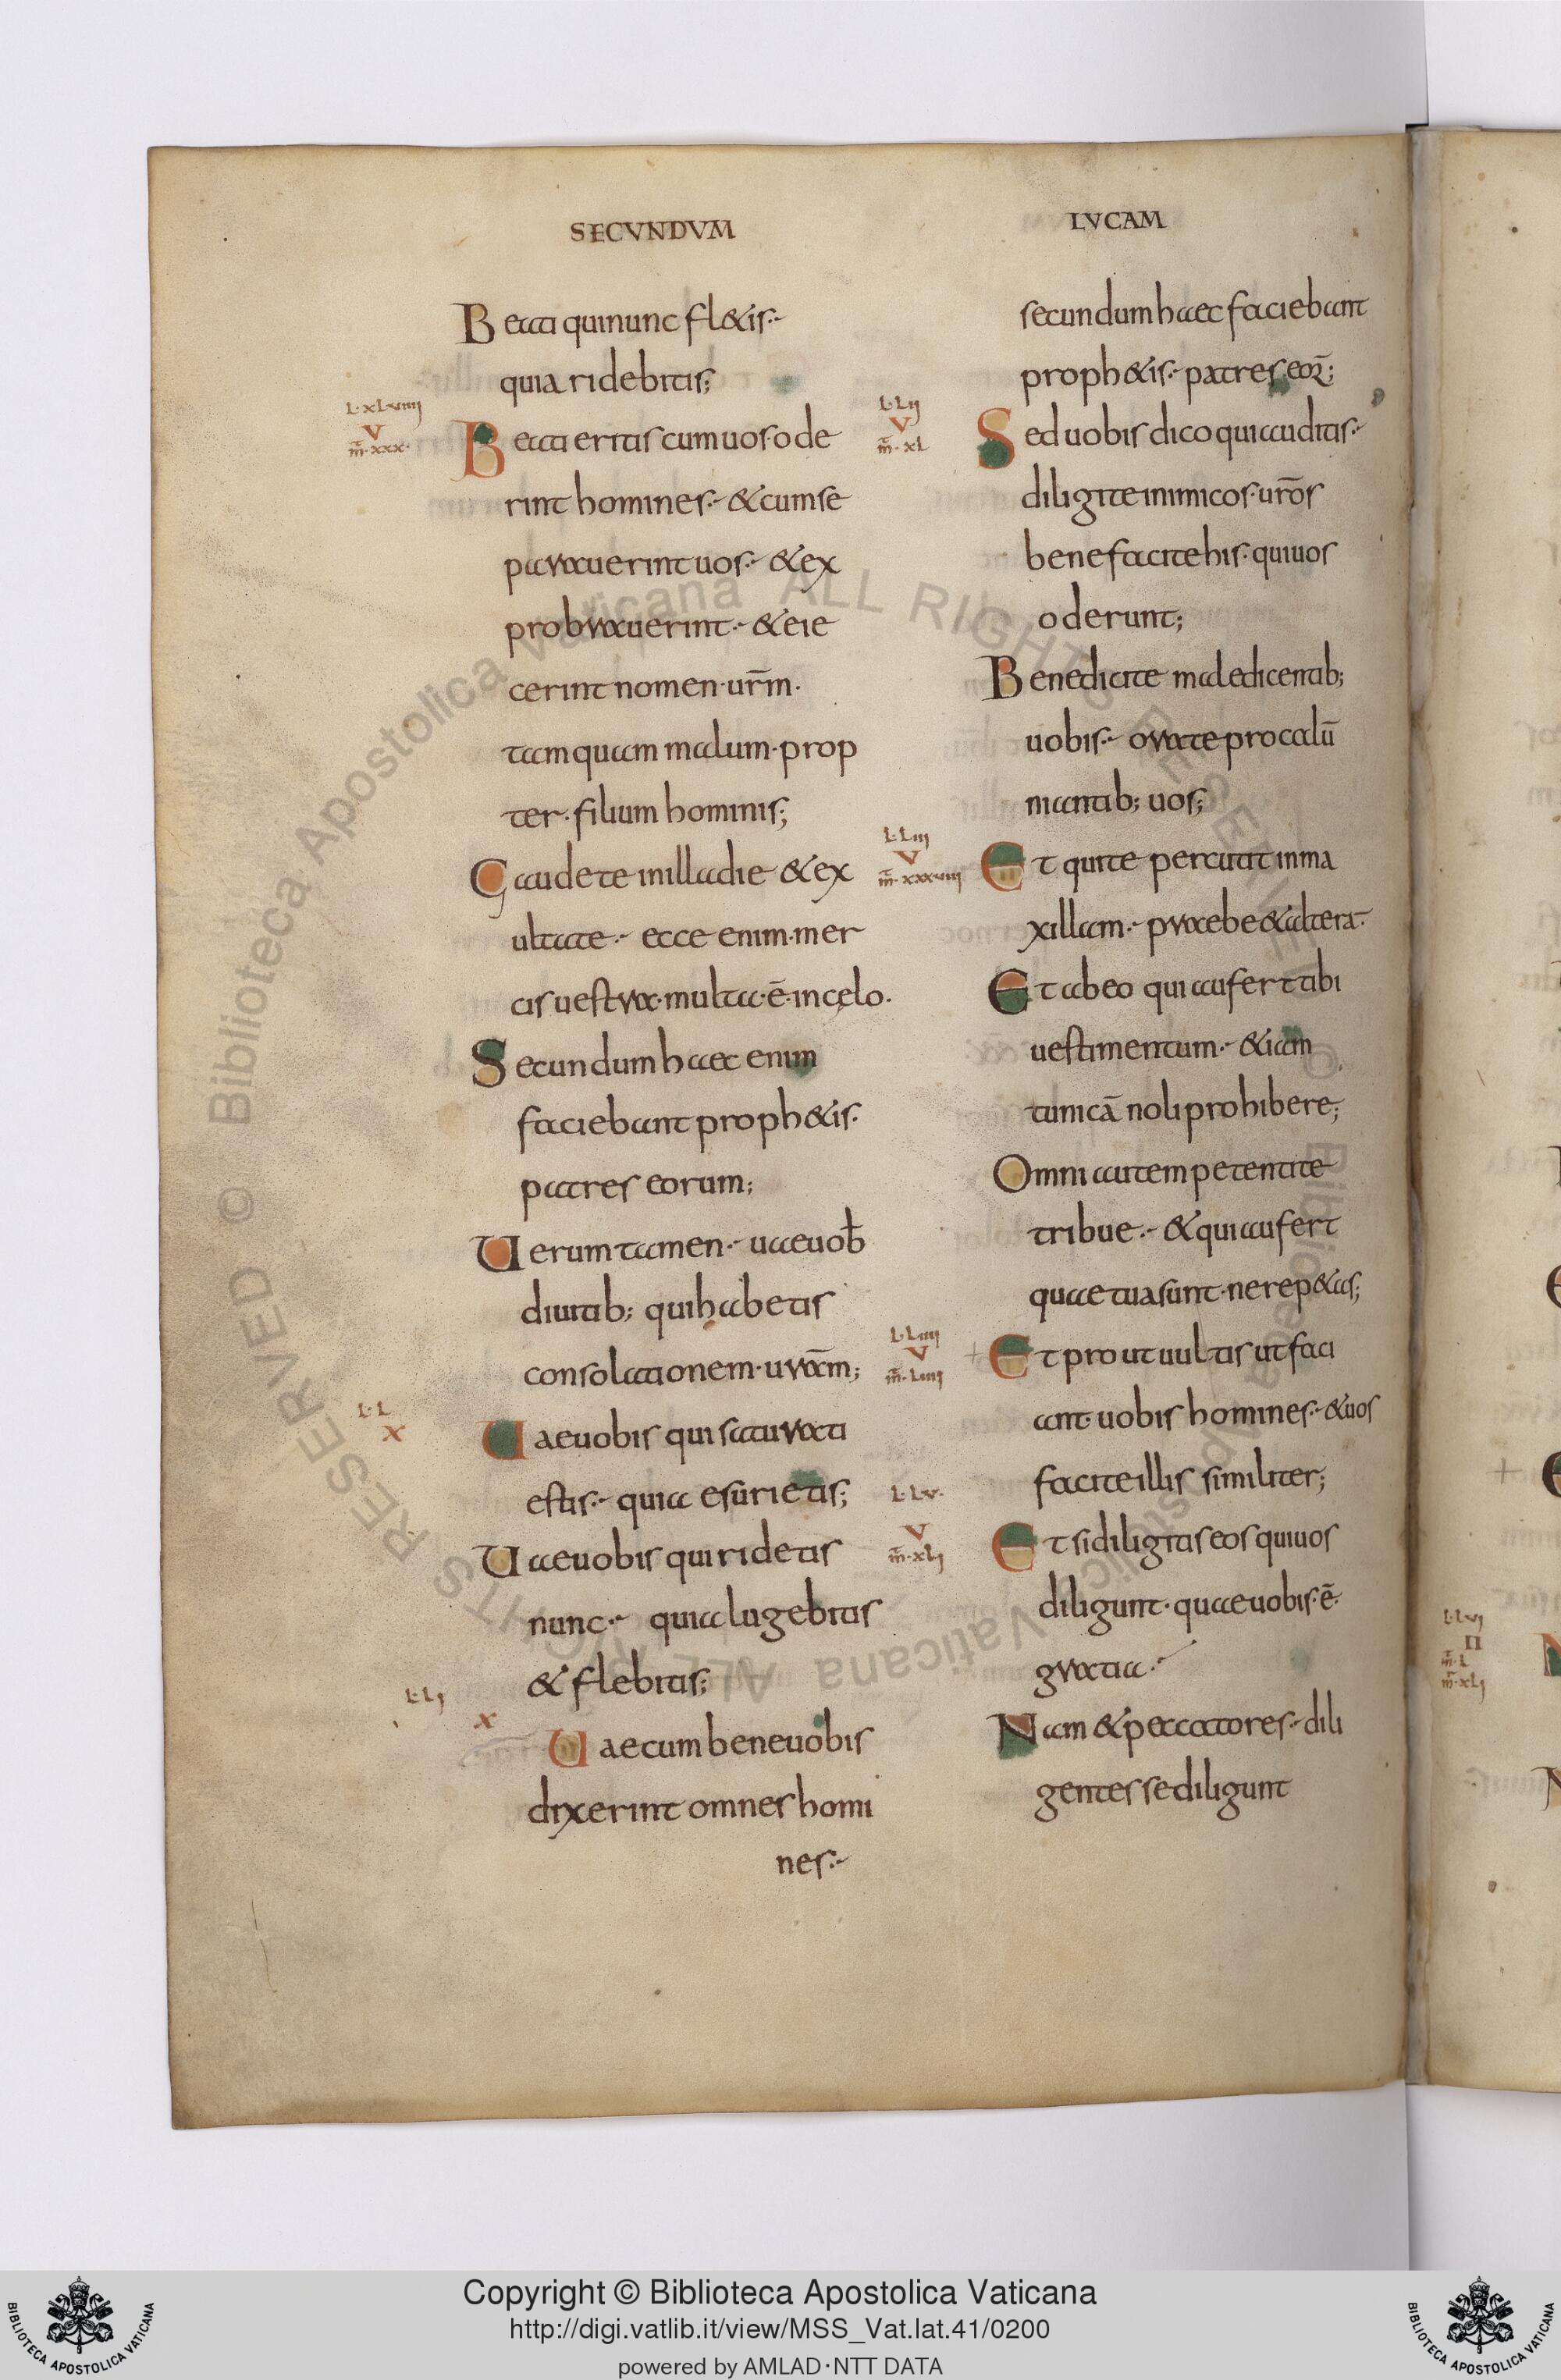 SECVNDVM
Beati qui nunc fl&is.
quia ridebitis;
L·xLviiii
V
m̄·xxx·
Beati eritis cum uos ode
rint homines. & cum se
parauerint uos. & ex
probrauerint. & eie
cerint nomen·ur̄m·
tamquam malum·prop
ter·filium hominis;
Gaudete in illa die & ex
ultate. ecce enim·mer
cis uestra·multa·ē·in cęlo·
Secundum haec enim
faciebant proph&is·
patres eorum;
Uerumtamen. uae uob̄
diuitib; qui habetis
consolationem·urām;
L·L
x
Uae uobis qui saturati
estis. quia esurietis;
Uae uobis qui ridetis
nunc. quia lugebitis
& flebitis;
L·Lj
x
Uae cum bene uobis
dixerint omnes homi
nes.
LVCAM
secundum haec faciebant
proph&is. patres eoꝝ;
L·Lij
V
m̄·xL
Sed uobis dico qui auditis.
diligite inimicos·ur̄os
benefacite his·qui uos
oderunt;
Benedicite maledicentib;
uobis. orate pro calū
niantib; uos;
L·Liii
V
m̄·xxxviiii
Et qui te percutit in ma
xillam. praebe & altera·
Et ab eo qui aufert tibi
uestimentum. &iam
tunicā noli prohibere;
Omni autem petenti te
tribue. & qui aufert
quae tua sunt·ne rep&as;
L·Liiii
V
m̄·Liiij
Et prout uultis ut faci
ant·uobis homines. & uos
facite illis similiter;
L·Lv·
V
m̄·xLj
Et si diligitis eos qui uos
diligunt·quae uobis·ē·
gratia.
Nam & peccatores. dili
gentes se diligunt
L·Lvj
II
m̄·L
m̄·xLj
© Biblioteca Apostolica Vaticana ALL RIGHTS RESERVED © Biblioteca Apostolica Vaticana ALL RIGHTS RESERVED
Copyright © Biblioteca Apostolica Vaticana
http://digi.vatlib.it/view/MSS_Vat.lat.41/0200
powered by AMLAD·NTT DATA
BIBLIOTECA APOSTOLICA VATICANA
BIBLIOTECA APOSTOLICA VATICANA